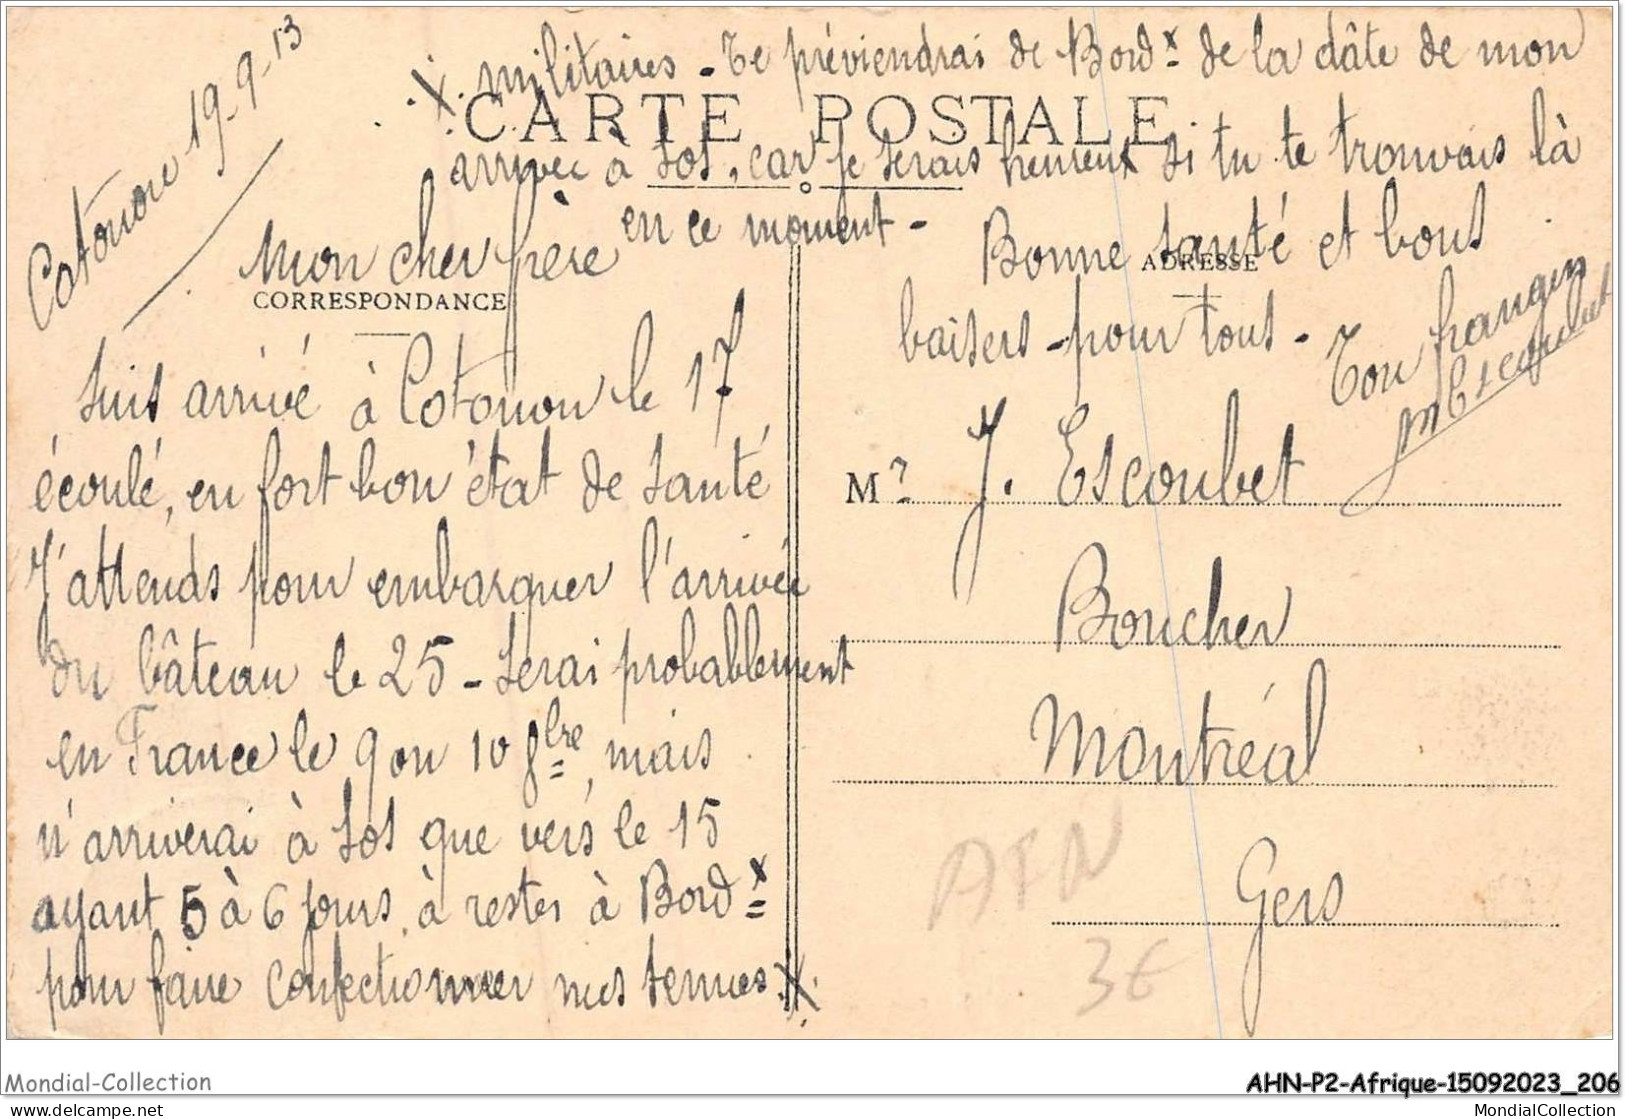 Cotonou 19-9-13
X. militaires - Te préviendrai de Bordx de la dâte de mon
CARTE POSTALE
arrivée à Sos, car je serais heureux si tu te trouvais là
en ce moment -
Mon cher frère
CORRESPONDANCE
Suis arrivé à Cotonou le 17
écoulé, en fort bon état de santé
J'attends pour embarquer l'arrivée
du bâteau le 25 - Serai probablement
en France le 9 ou 10 8bre, mais
n'arriverai à Sos que vers le 15
ayant 5 à 6 jours à rester à Bordx
pour faire confectionner nos tenues X.
Bonne santé et bons
ADRESSE
baisers pour tous -
Ton frangin
Escoubet
Mr J. Escoubet
Boucher
Montréal
Gers
AFN
3€
Mondial-Collection
AHN-P2-Afrique-15092023_206
www.delcampe.net
MondialCollection